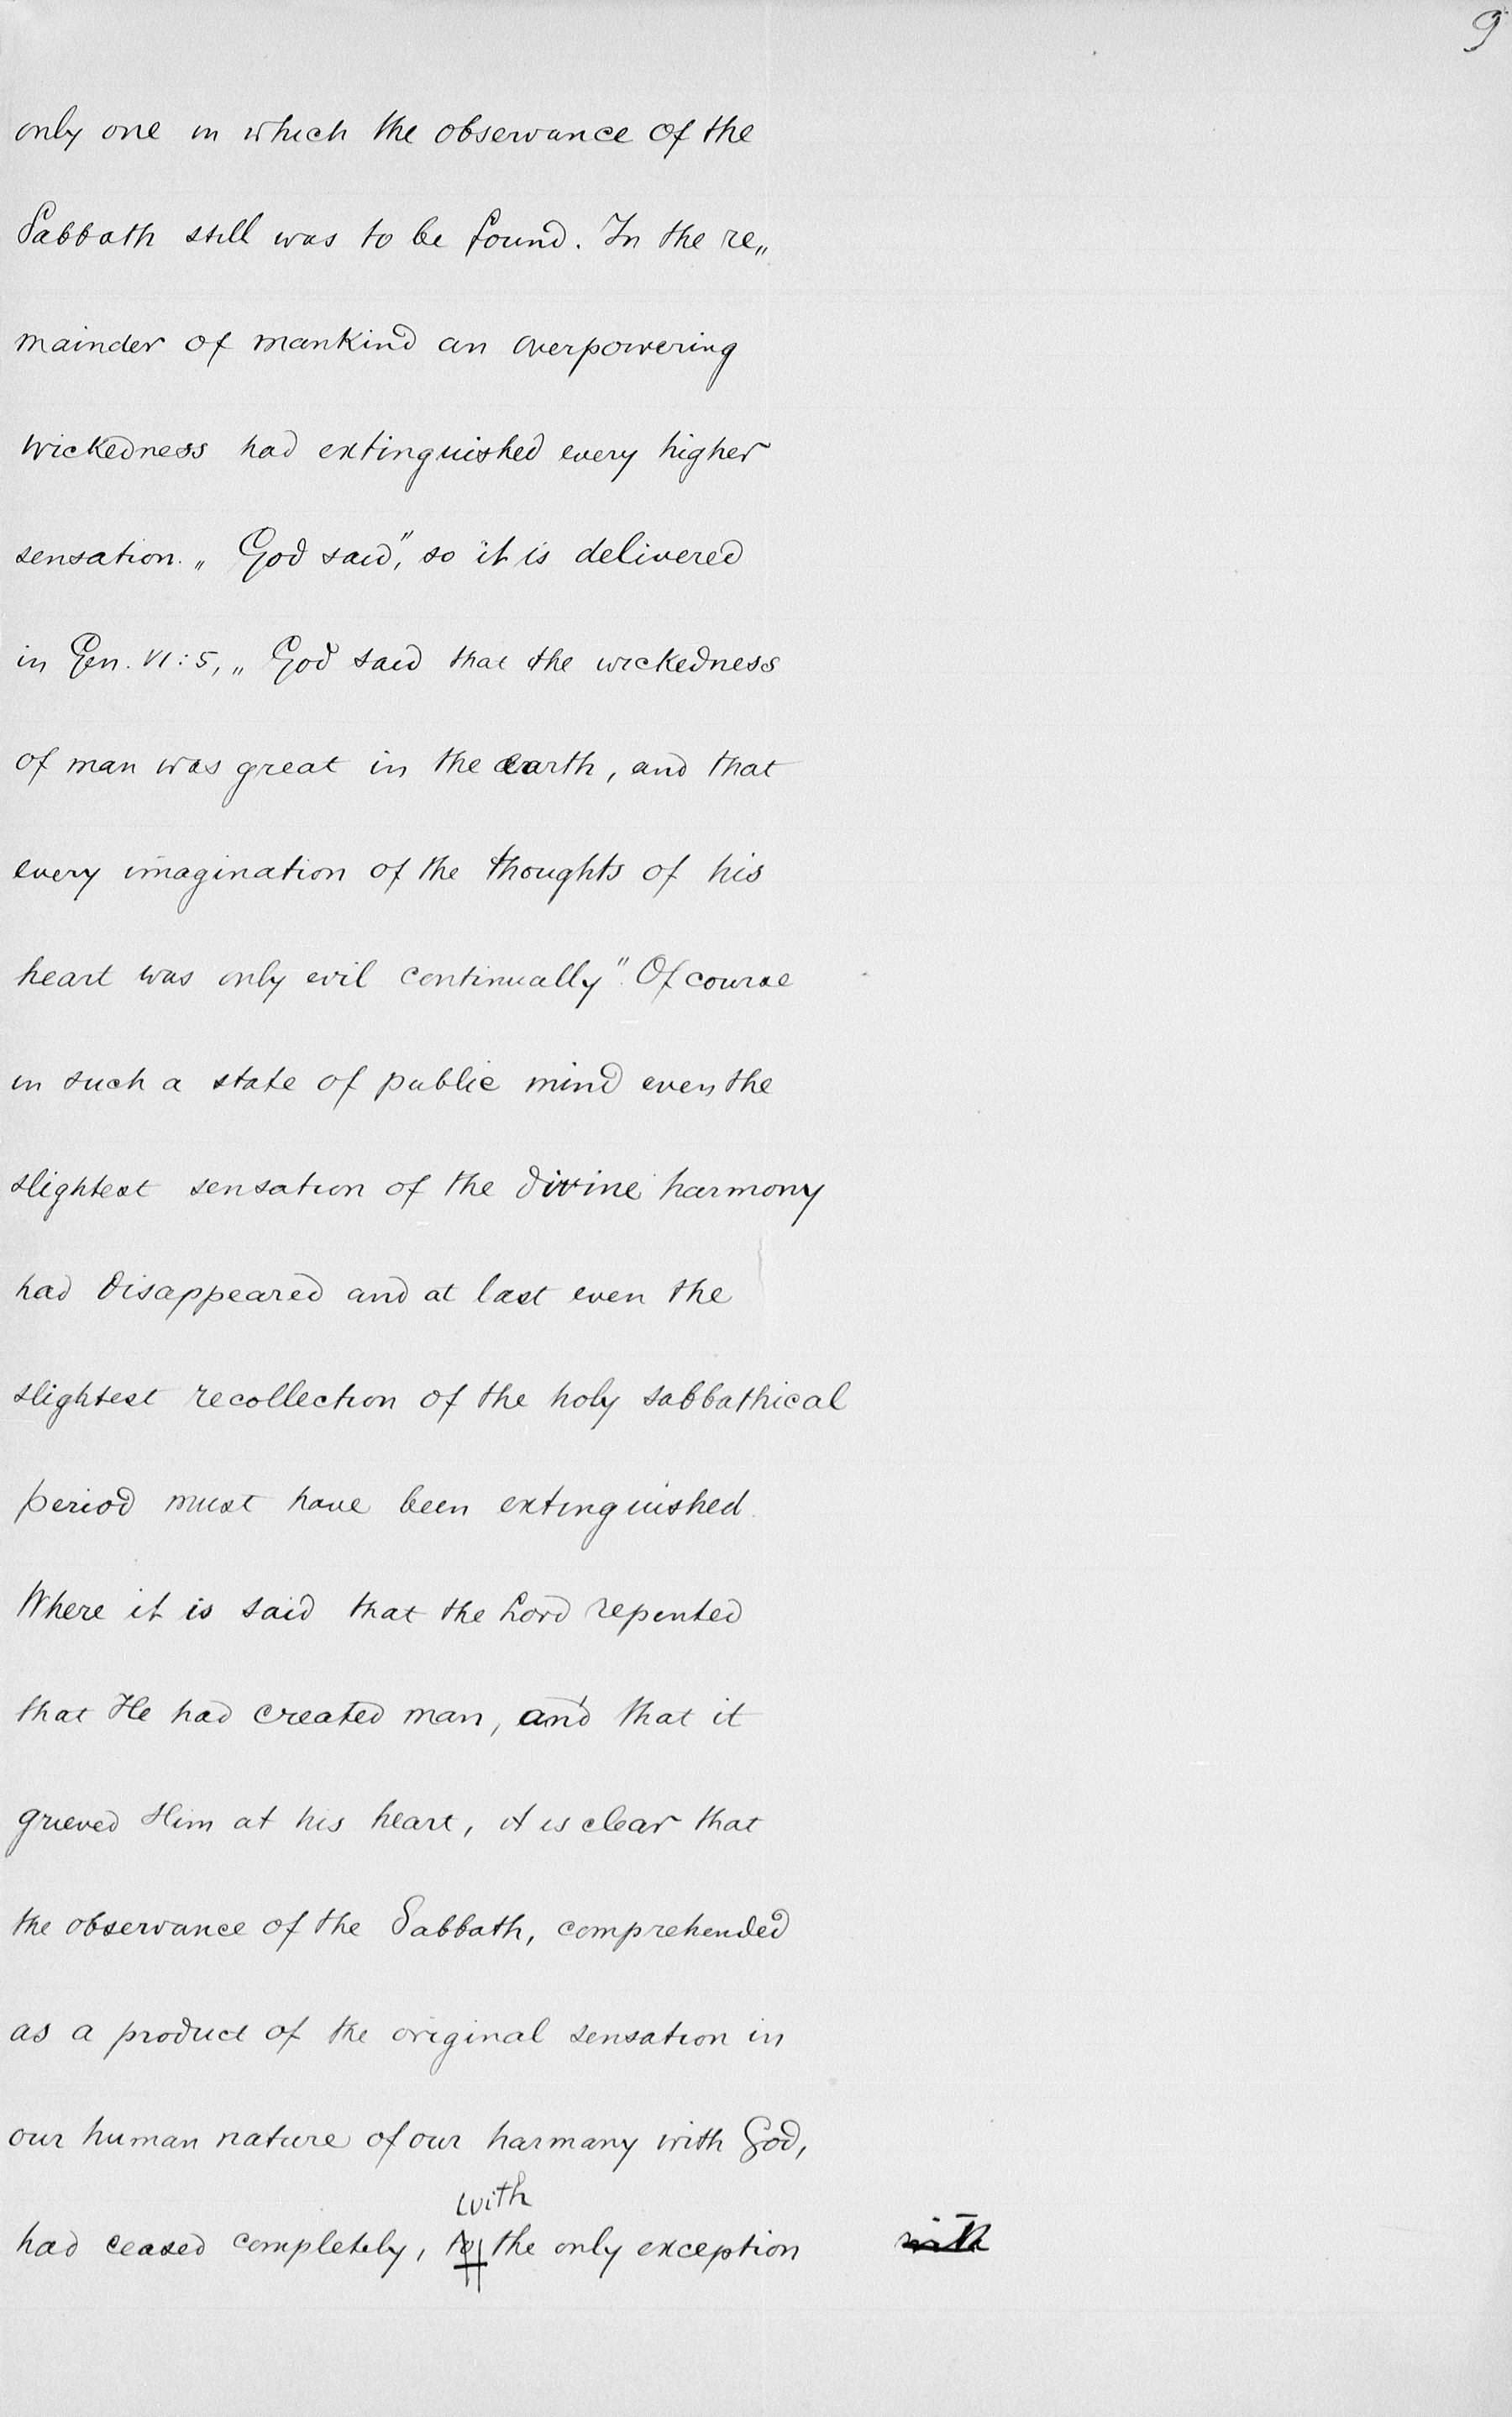 9
only one in which the observance of the
Sabbath still was to be found. In the re„
mainder of mankind an overpowering
wickedness had extinguished every higher
sensation. „God said”, so it is delivered
in Gen. VI:5, „God said that the wickedness
of man was great in the earth, and that
every imagination of the thoughts of his
heart was only evil continually”. Of course
in such a state of public mind even the
slightest sensation of the divine harmony
had disappeared and at last even the
slightest recollection of the holy sabbathical
period must have been extinguished.
Where it is said that the Lord repented
that He had created man, and that it
grieved Him at his heart, it is clear that
the observance of the Sabbath, comprehended
as a product of the original sensation in
our human nature of our harmany with God,
with
had ceased completely, to the only exception with